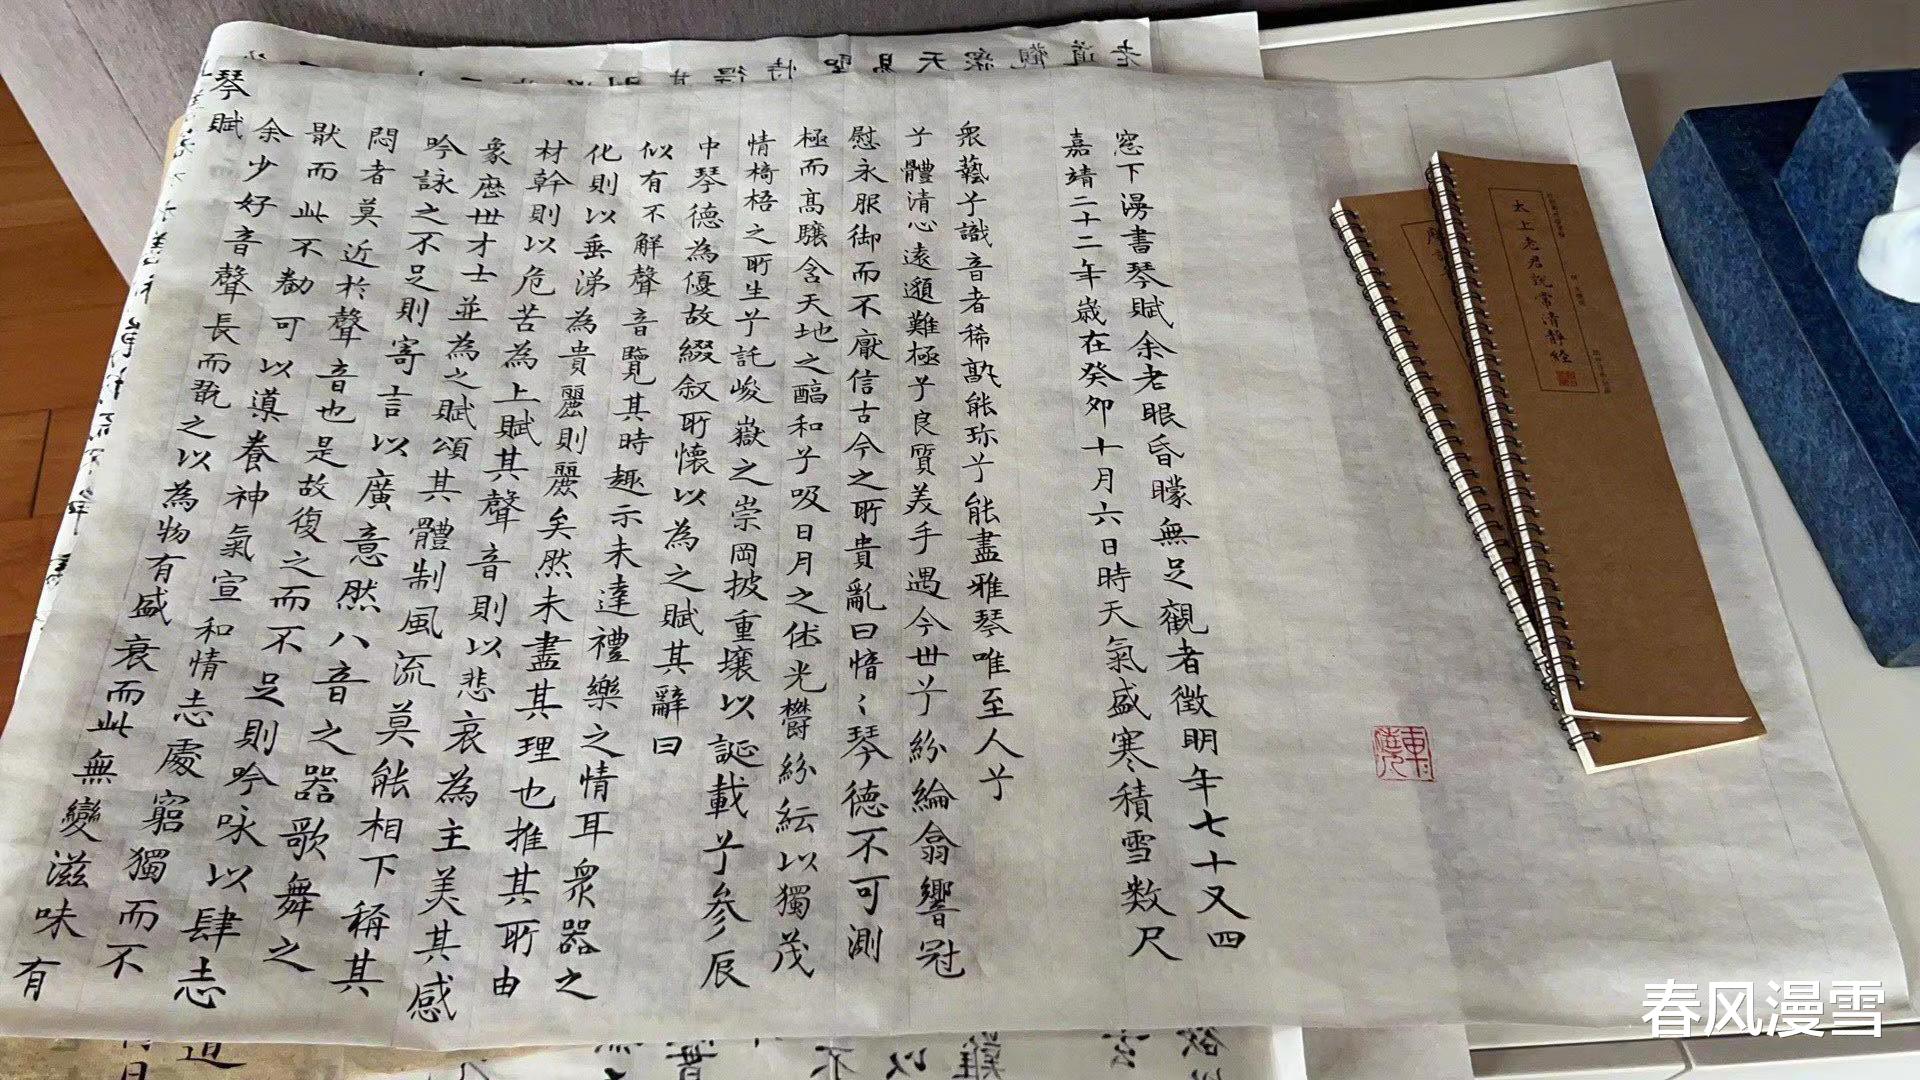 琴賦
余少好音聲長而翫之以為物有盛衰而此無變滋味有
猒而此不勌可以導養神氣宣和情志處窮獨而不
悶者莫近於聲音也是故復之而不足則吟咏以肆志
吟詠之不足則寄言以廣意然八音之器歌舞之
象歷世才士並為之賦頌其體制風流莫能相下稱其
材幹則以危苦為上賦其聲音則以悲哀為主美其感
化則以垂涕為貴麗則麗矣然未盡其理也推其所由
似有不解聲音覽其時趣示未達禮樂之情耳衆器之
中琴德為優故綴叙所懷以為之賦其辭曰
情椅梧之所生兮託峻嶽之崇岡披重壤以誕載兮參辰
極而高驤含天地之醕和兮吸日月之休光欝紛紜以獨茂
慰永服御而不厭信古今之所貴亂曰愔〻琴德不可測
兮體清心遠邈難極兮良質美手遇今世兮紛綸翕響冠
衆藝兮識音者稀孰能珍兮能盡雅琴唯至人兮
嘉靖二十二年歲在癸卯十月六日時天氣盛寒積雪数尺
窓下漫書琴賦余老眼昏矇無足觀者徵明年七十又四
太上老君説常清静经
春风漫雪